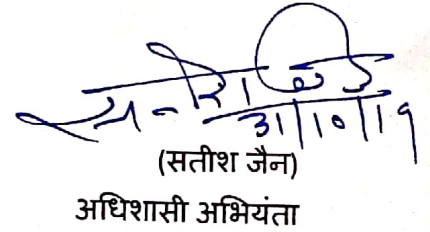 31/10/19
(सतीश जैन)
अधिशासी अभियंता